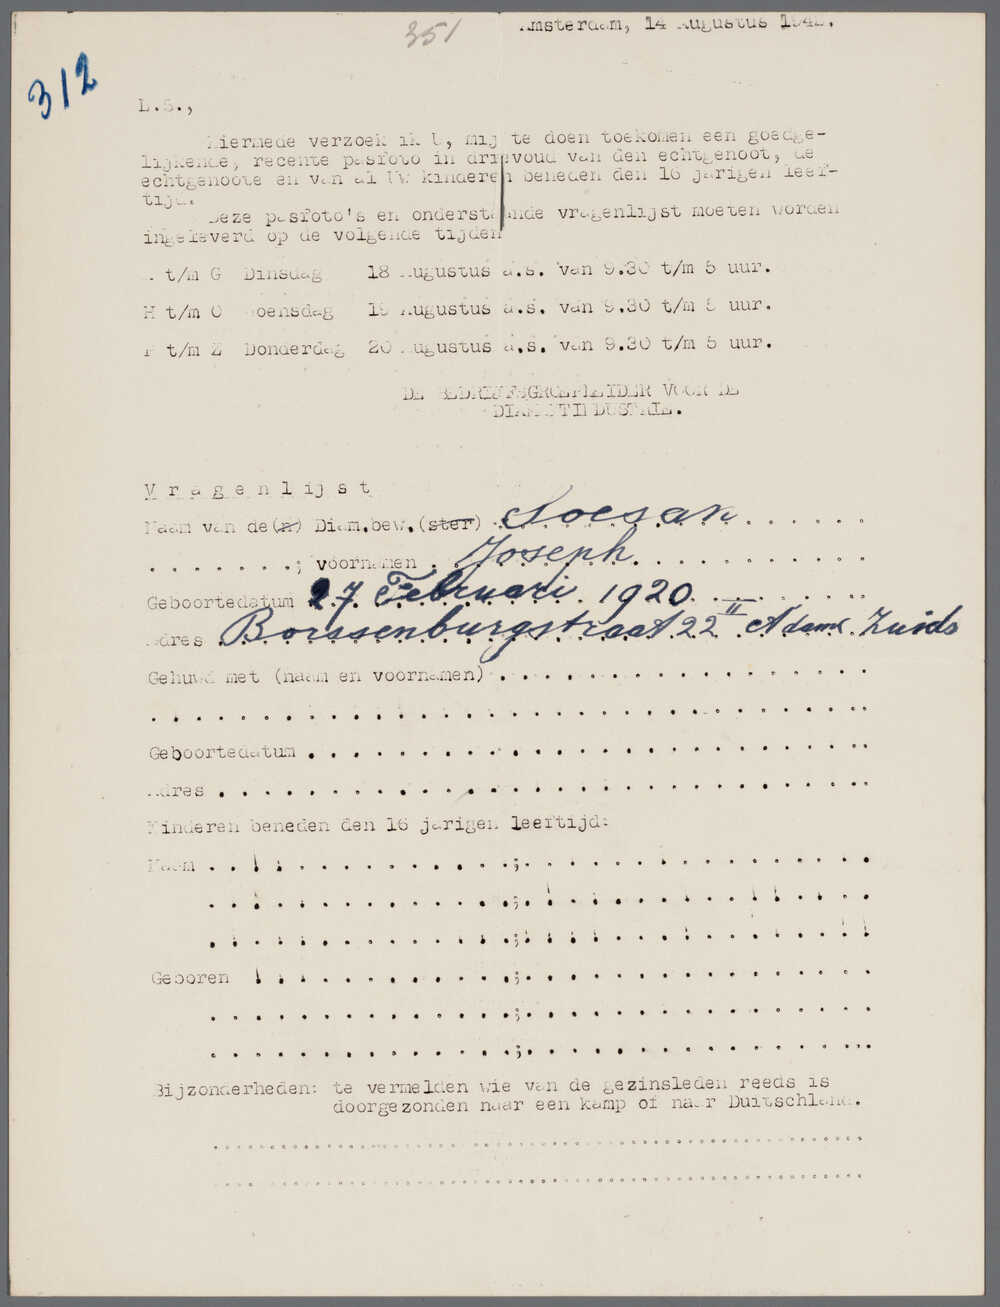 351
Amsterdam, 14 Augustus 1942.
312
L.S.,
Hiermede verzoek ik U, mij te doen toekomen een goedge-
lijkende, recente pasfoto in drievoud van den echtgenoot, de
echtgenoote en van al Uw kinderen beneden den 16 jarigen leef-
tijd.
Deze pasfoto's en onderstaande vragenlijst moeten worden
ingeleverd op de volgende tijden
A t/m G Dinsdag 18 Augustus a.s. van 9.30 t/m 5 uur.
H t/m O Woensdag 19 Augustus a.s. van 9.30 t/m 5 uur.
P t/m Z Donderdag 20 Augustus a.s. van 9.30 t/m 5 uur.
DE BEDRIJFSGROEPLEIDER VOOR DE
DIAMANTINDUSTRIE.
Vragenlijst
Naam van de(n) Diam.bew.(ster) Soesan
; voornamen Joseph
Geboortedatum 27 Februari 1920
Adres Borssenburgstraat 22 II A'dam Zuid
Gehuwd met (naam en voornamen)
Geboortedatum
Adres
Kinderen beneden den 16 jarigen leeftijd:
Naam
Geboren
Bijzonderheden: te vermelden wie van de gezinsleden reeds is
doorgezonden naar een kamp of naar Duitschland.